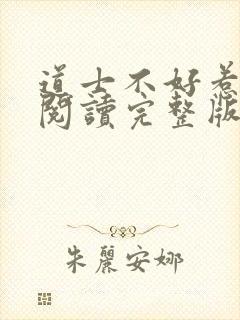 道士不好惹
閱讀完整版
朱麗安娜